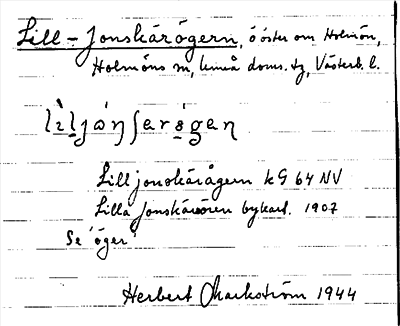 Lill-Jonskärögern, ö öster om Holmön,
Holmöns sn, Umeå doms. tg, Västerb. l.
Lill jonskärågern kG 64 NV
Lilla Jonskärsören bykart. 1907
Se 'öger'
Herbert Markström 1944